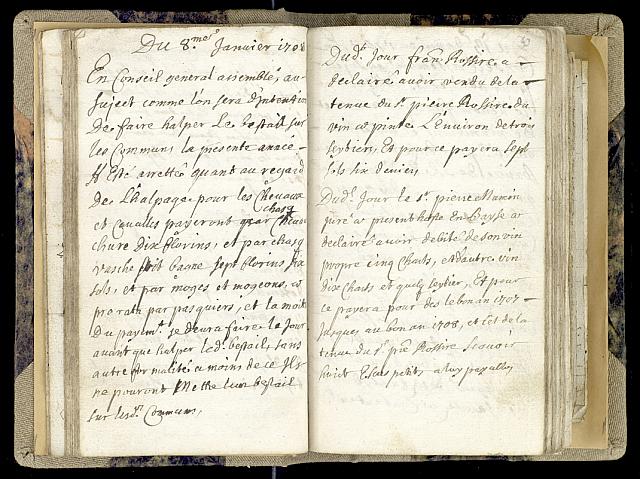 Du 8.mes Janvier 1708
En Conseil general assemblé, au
suject comme l'on sera d'intention
De faire halper Le bestail sur
les Communs la presente année
A Esté arretté quant au regard
De Lhalpage pour les Chevaux
chasq
et Cavalles payeront
chure Dix florins, et par chasq
vasche soit bagne sept florins six
sols, et par moges et mogeons, à
pro rata par pasquiers, et la moitié
Du payemt. se devra faire le Jour
avant que halper led. bestail sans
autre formalité a moins de ce Ils
ne pouront Mettre leur bestail
sur lesd. Communs,
Dud. Jour fran. Rossire a
declairé avoir vendu de la
tenue du Sr. pierre Rossire du
vin à pinte L'Environ de trois
seytiers, Et pour ce payera sept
sols six deniers
Dud. Jour le Sr. pierre
juré à present hoste En Basse a
declairé avoir debité de son vin
propre cinq Chars, et d'autre vin
Dix Chars et quelq seytier, Et pour
ce payera pour des le bon an 1707
Jusques au bon an 1708, et c'est de la
tenue du Sr. pre. Rossire sçavoir
huict Escus petits